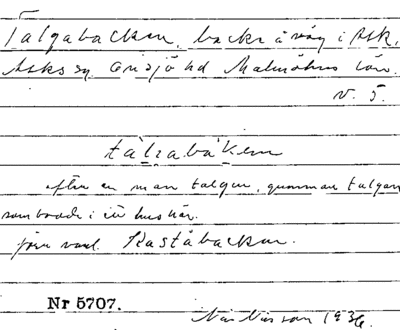 Talgabacken, backe å väg i Ask,
Asks sn Onsjö hd Malmöhus län.
V. 5.
tàlgabàken
efter en man talgen, gumman talgan
som bodde i ett hus här.
jfr Kastabacken.
Nr 5707.
Nils Nilsson 1936.